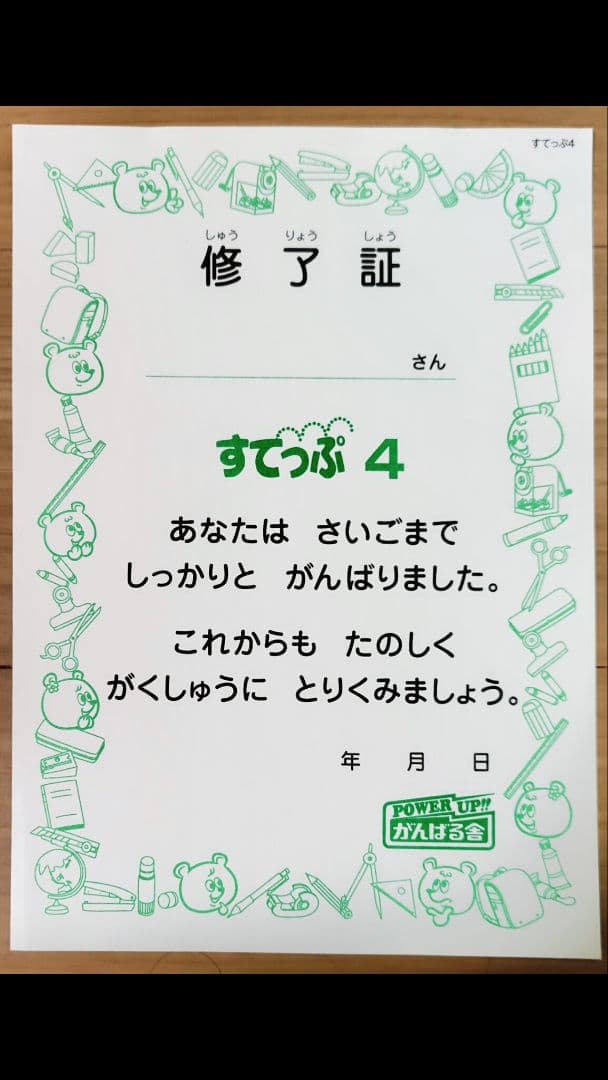 すてっぷ4
しゅう りょう しょう
修 了 証
さん
すてっぷ 4
あなたは さいごまで
しっかりと がんばりました。
これからも たのしく
がくしゅうに とりくみましょう。
年 月 日
POWER UP!!
がんばる舎